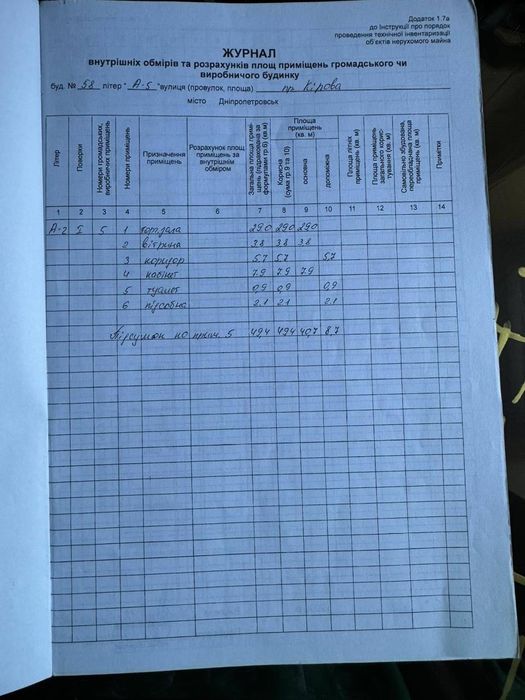 Додаток 1.7а
до Інструкції про порядок
проведення технічної інвентаризації
об'єктів нерухомого майна
ЖУРНАЛ
внутрішніх обмірів та розрахунків площ приміщень громадського чи
виробничого будинку
буд. № 58 літер " А-5 "вулиця (провулок, площа) пр. Кірова
місто Дніпропетровськ
Літер Поверхи Номери громадських, виробничих приміщень Номери приміщень Призначення приміщень Розрахунок площ приміщень за внутрішнім обміром Загальна площа приміщень (підрахована за формулами гр.6) (кв.м) Корисна (сума гр.9 та 10) Площа приміщень (кв. м) основна допоміжна Площа літніх приміщень (кв. м) Площа приміщень загального користування (кв. м) Самовільно збудована, переобладнана площа приміщень (кв. м) Примітки
1 2 3 4 5 6 7 8 9 10 11 12 13 14
А-2 І 5 1 торг.зала 29.0 29.0 29.0
2 вітрина 3.8 3.8 3.8
3 коридор 5.7 5.7 5.7
4 кабінет 7.9 7.9 7.9
5 туалет 0,9 0,9 0,9
6 підсобна 2.1 2.1 2.1
Підсумок по прим. 5 49,4 49,4 40,7 8,7